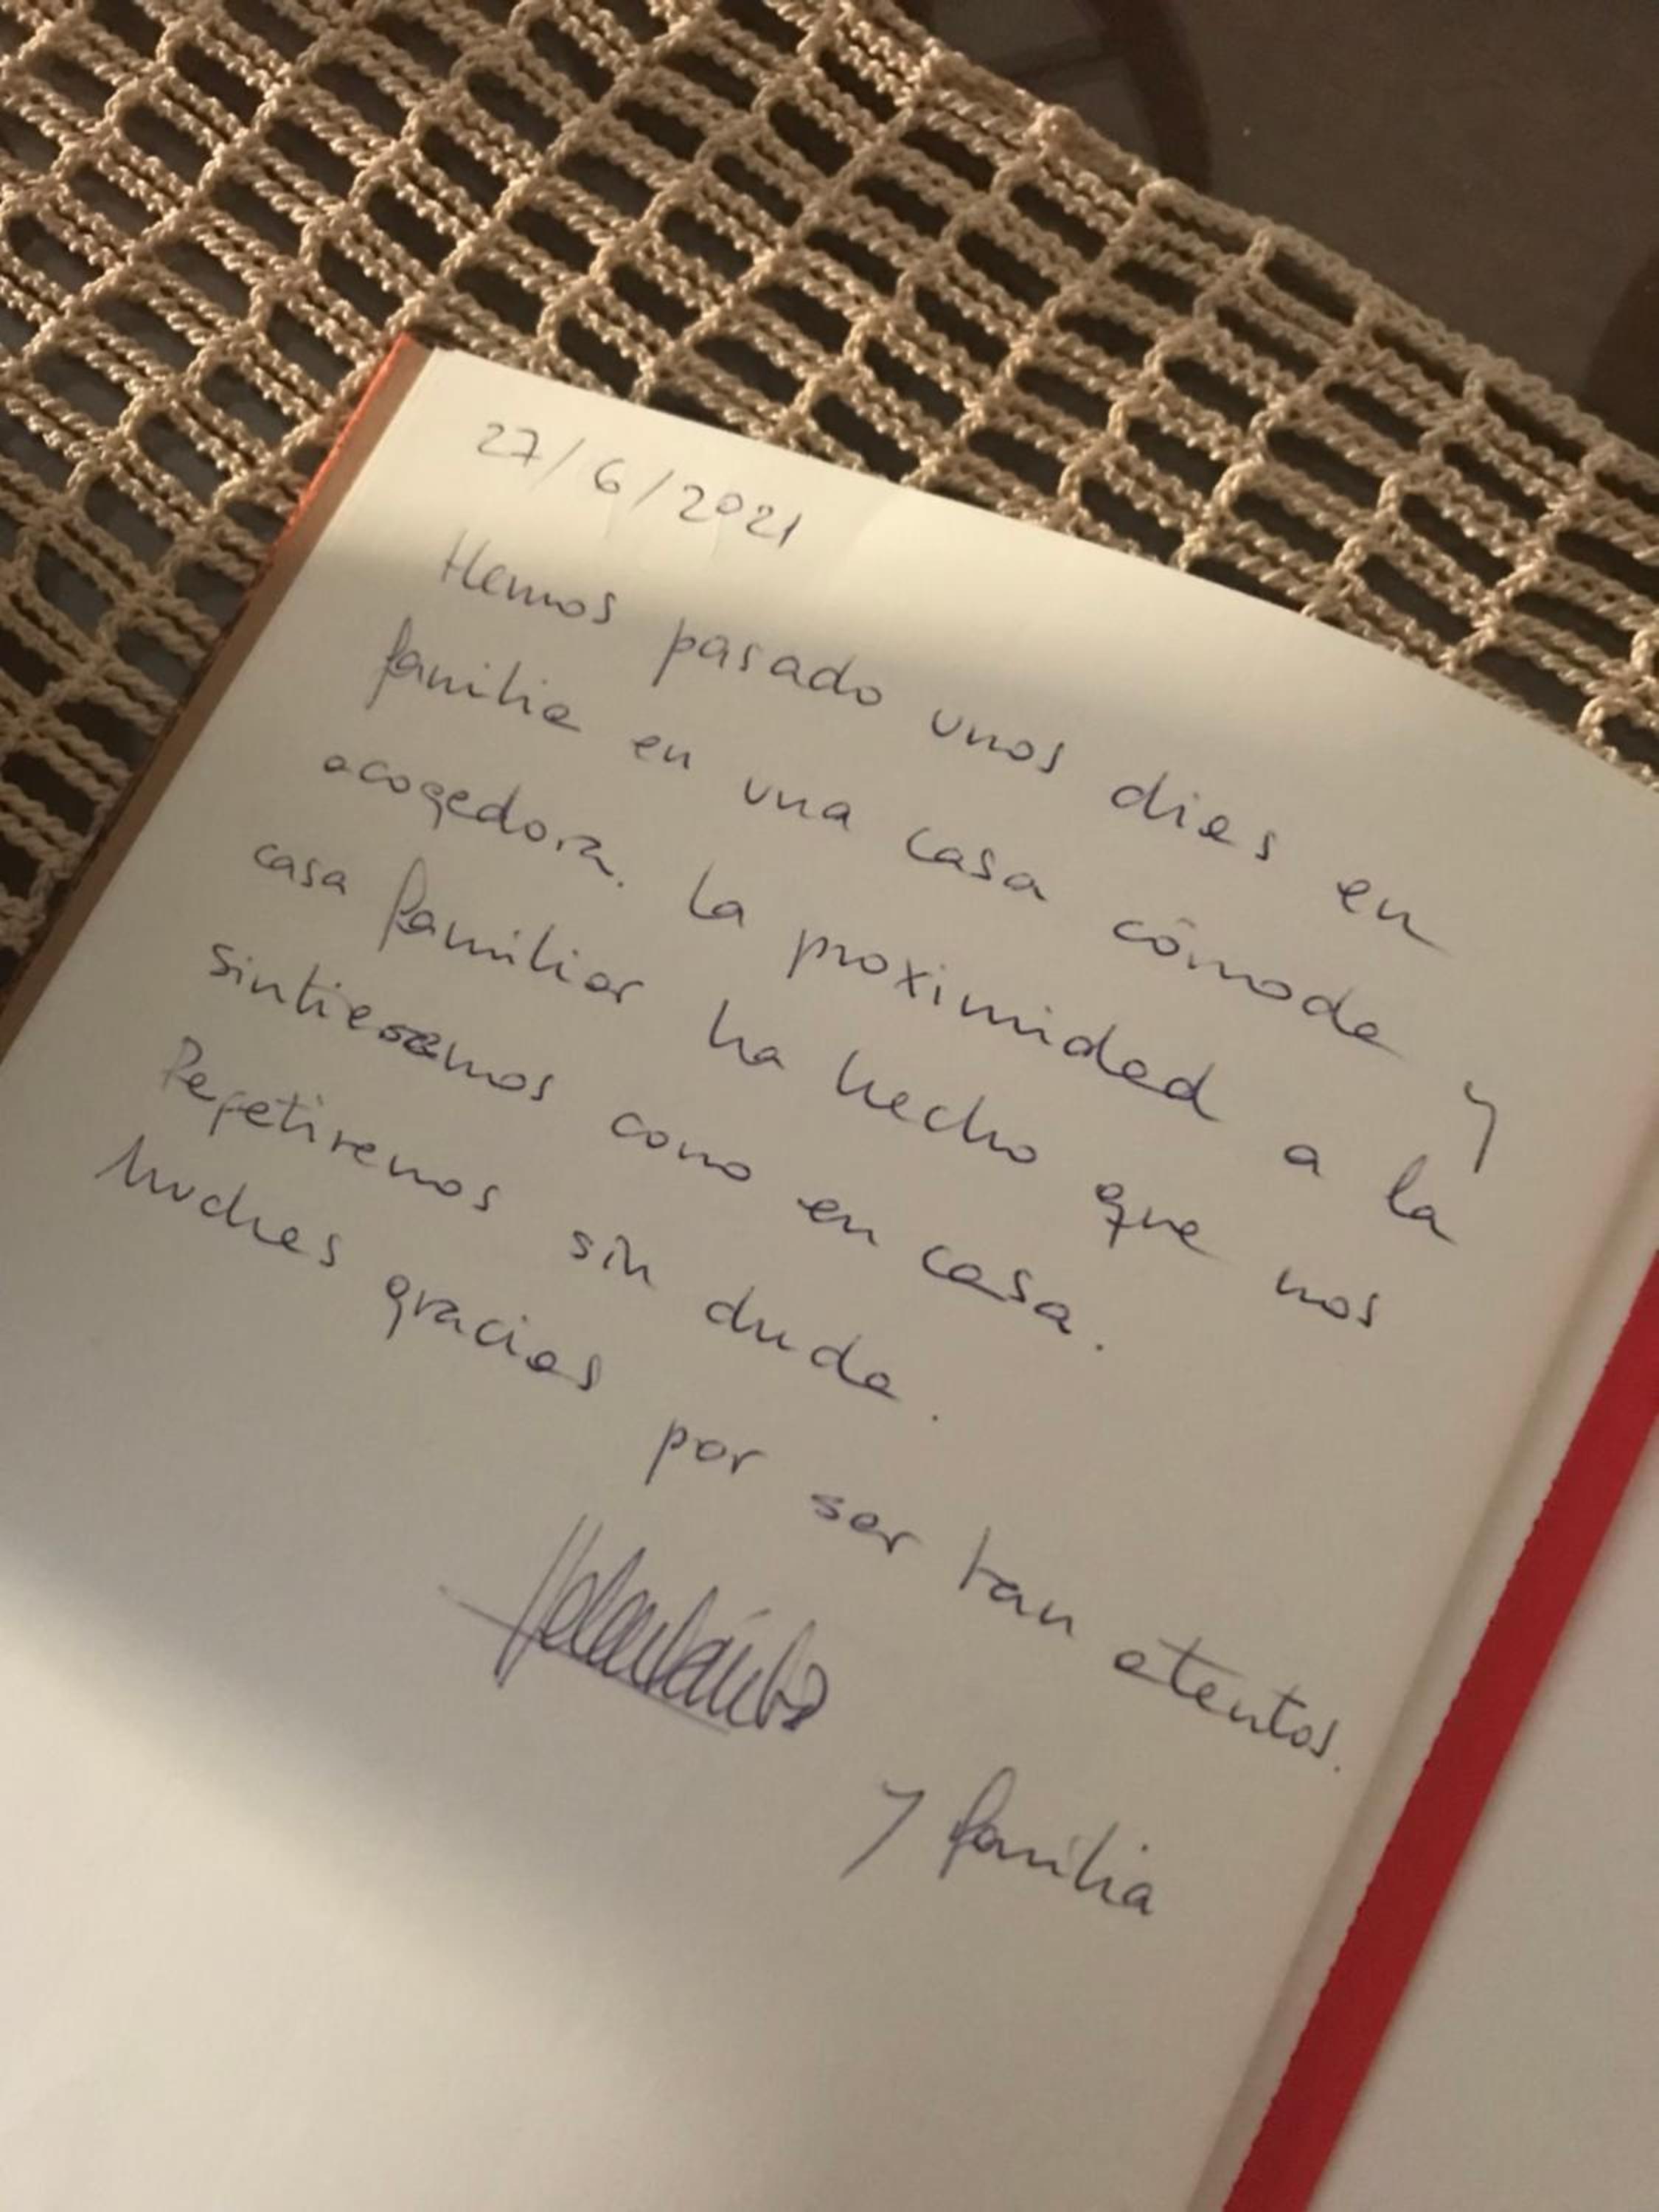 27/6/2021
Hemos pasado unos dias en
familia en una casa cómoda y
acogedora. La proximidad a la
casa familiar ha hecho que nos
sintieramos como en casa.
Repetiremos sin duda.
Muchas gracias por ser tan atentos.
y familia